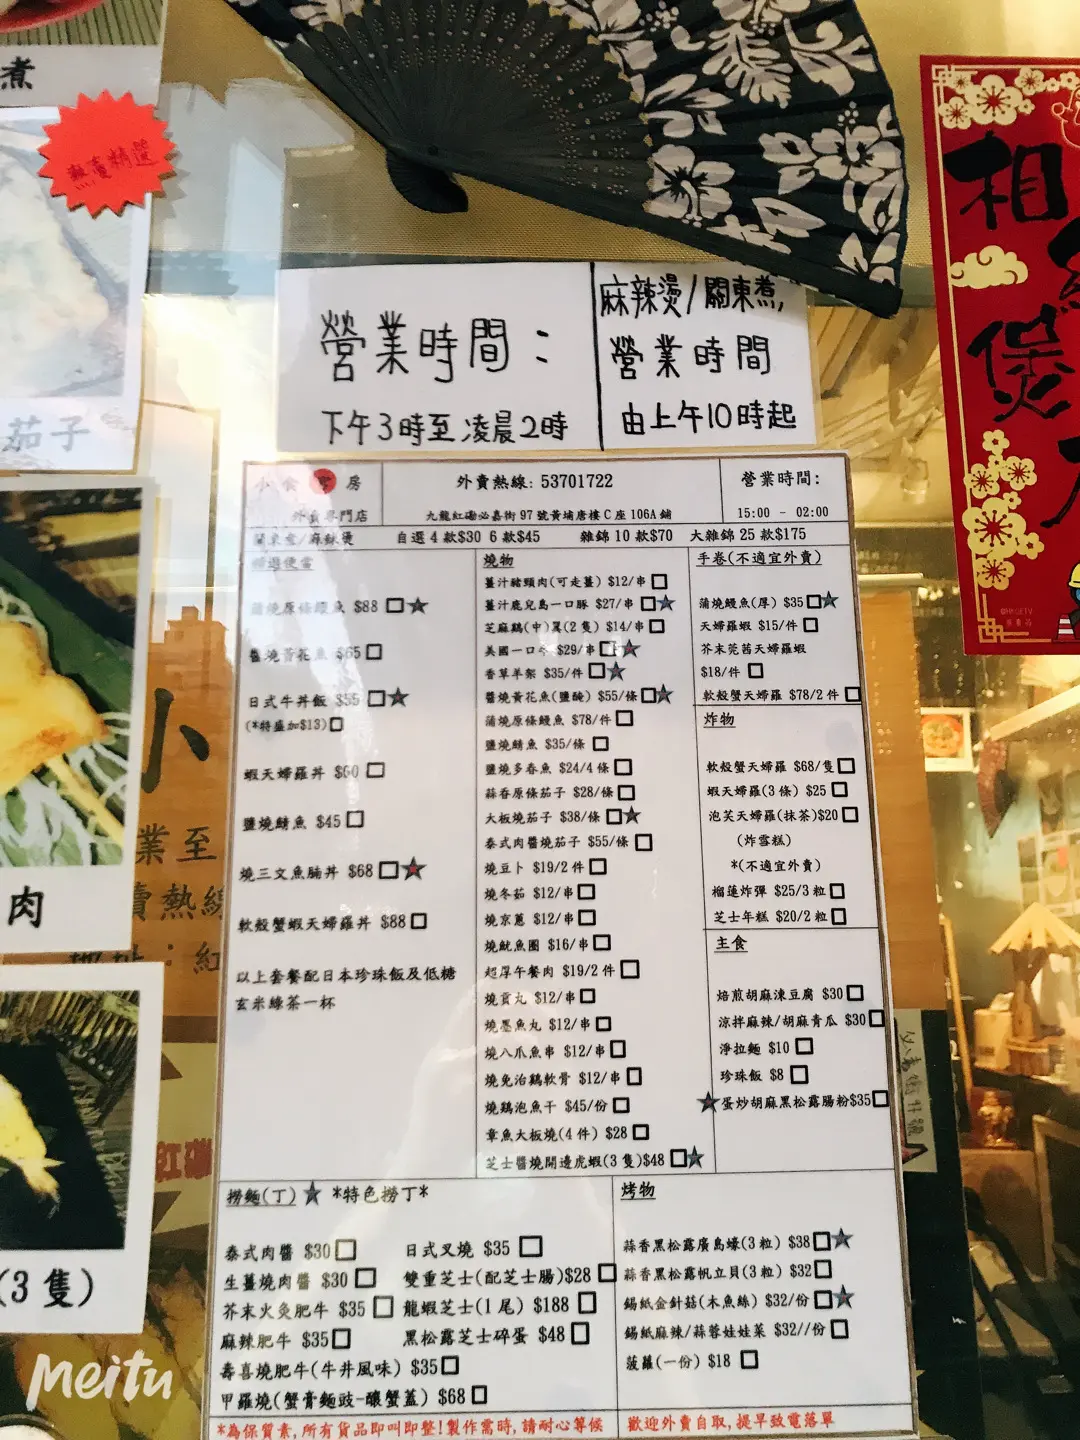 煮
熱賣精選
茄子
肉
(3 隻)
小
業至
賣熱線
地址：紅
相
煲
營業時間：
下午3時至凌晨2時
麻辣燙/關東煮,
營業時間
由上午10時起
小食 房
外賣專門店
外賣熱線: 53701722
九龍紅磡必嘉街 97 號黃埔唐樓 C 座 106A 舖
營業時間:
15:00 - 02:00
關東煮/麻辣燙 自選 4 款$30 6 款$45 雜錦 10 款$70 大雜錦 25 款$175
精選便當
蒲燒原條鰻魚 $88
醬燒黃花魚 $65
日式牛丼飯 $55
(*特盛加$13)
蝦天婦羅丼 $60
鹽燒鯖魚 $45
燒三文魚腩丼 $68
軟殼蟹蝦天婦羅丼 $88
以上套餐配日本珍珠飯及低糖
玄米綠茶一杯
燒物
薑汁豬頸肉(可走薑) $12/串
薑汁鹿兒島一口豚 $27/串
芝麻鷄(中)翼(2 隻) $14/串
美國一口牛 $29/串
香草羊架 $35/件
醬燒黃花魚(鹽醃) $55/條
蒲燒原條鰻魚 $78/件
鹽燒鯖魚 $35/條
鹽燒多春魚 $24/4 條
蒜香原條茄子 $28/條
大板燒茄子 $38/條
泰式肉醬燒茄子 $55/條
燒豆卜 $19/2 件
燒冬菇 $12/串
燒京蔥 $12/串
燒魷魚圈 $16/串
超厚午餐肉 $19/2 件
燒貢丸 $12/串
燒墨魚丸 $12/串
燒八爪魚串 $12/串
燒免治鷄軟骨 $12/串
燒鷄泡魚干 $45/份
章魚大板燒(4 件) $28
芝士醬燒開邊虎蝦(3 隻)$48
手卷(不適宜外賣)
蒲燒鰻魚(厚) $35
天婦羅蝦 $15/件
芥末莞茜天婦羅蝦
$18/件
軟殼蟹天婦羅 $78/2 件
炸物
軟殼蟹天婦羅 $68/隻
蝦天婦羅(3 條) $25
泡芙天婦羅(抹茶)$20
(炸雪糕)
*(不適宜外賣)
榴蓮炸彈 $25/3 粒
芝士年糕 $20/2 粒
主食
焙煎胡麻涷豆腐 $30
涼拌麻辣/胡麻青瓜 $30
淨拉麵 $10
珍珠飯 $8
蛋炒胡麻黑松露腸粉$35
撈麵(丁) *特色撈丁*
泰式肉醬 $30
生薑燒肉醬 $30
芥末火灸肥牛 $35
麻辣肥牛 $35
壽喜燒肥牛(牛丼風味) $35
甲羅燒(蟹膏麵豉-釀蟹蓋) $68
日式叉燒 $35
雙重芝士(配芝士腸)$28
龍蝦芝士(1 尾) $188
黑松露芝士碎蛋 $48
烤物
蒜香黑松露廣島蠔(3 粒) $38
蒜香黑松露帆立貝(3 粒) $32
錫紙金針菇(木魚絲) $32/份
錫紙麻辣/蒜蓉娃娃菜 $32//份
菠蘿(一份) $18
*為保質素,所有貨品即叫即整!製作需時,請耐心等候
歡迎外賣自取,提早致電落單
Meitu